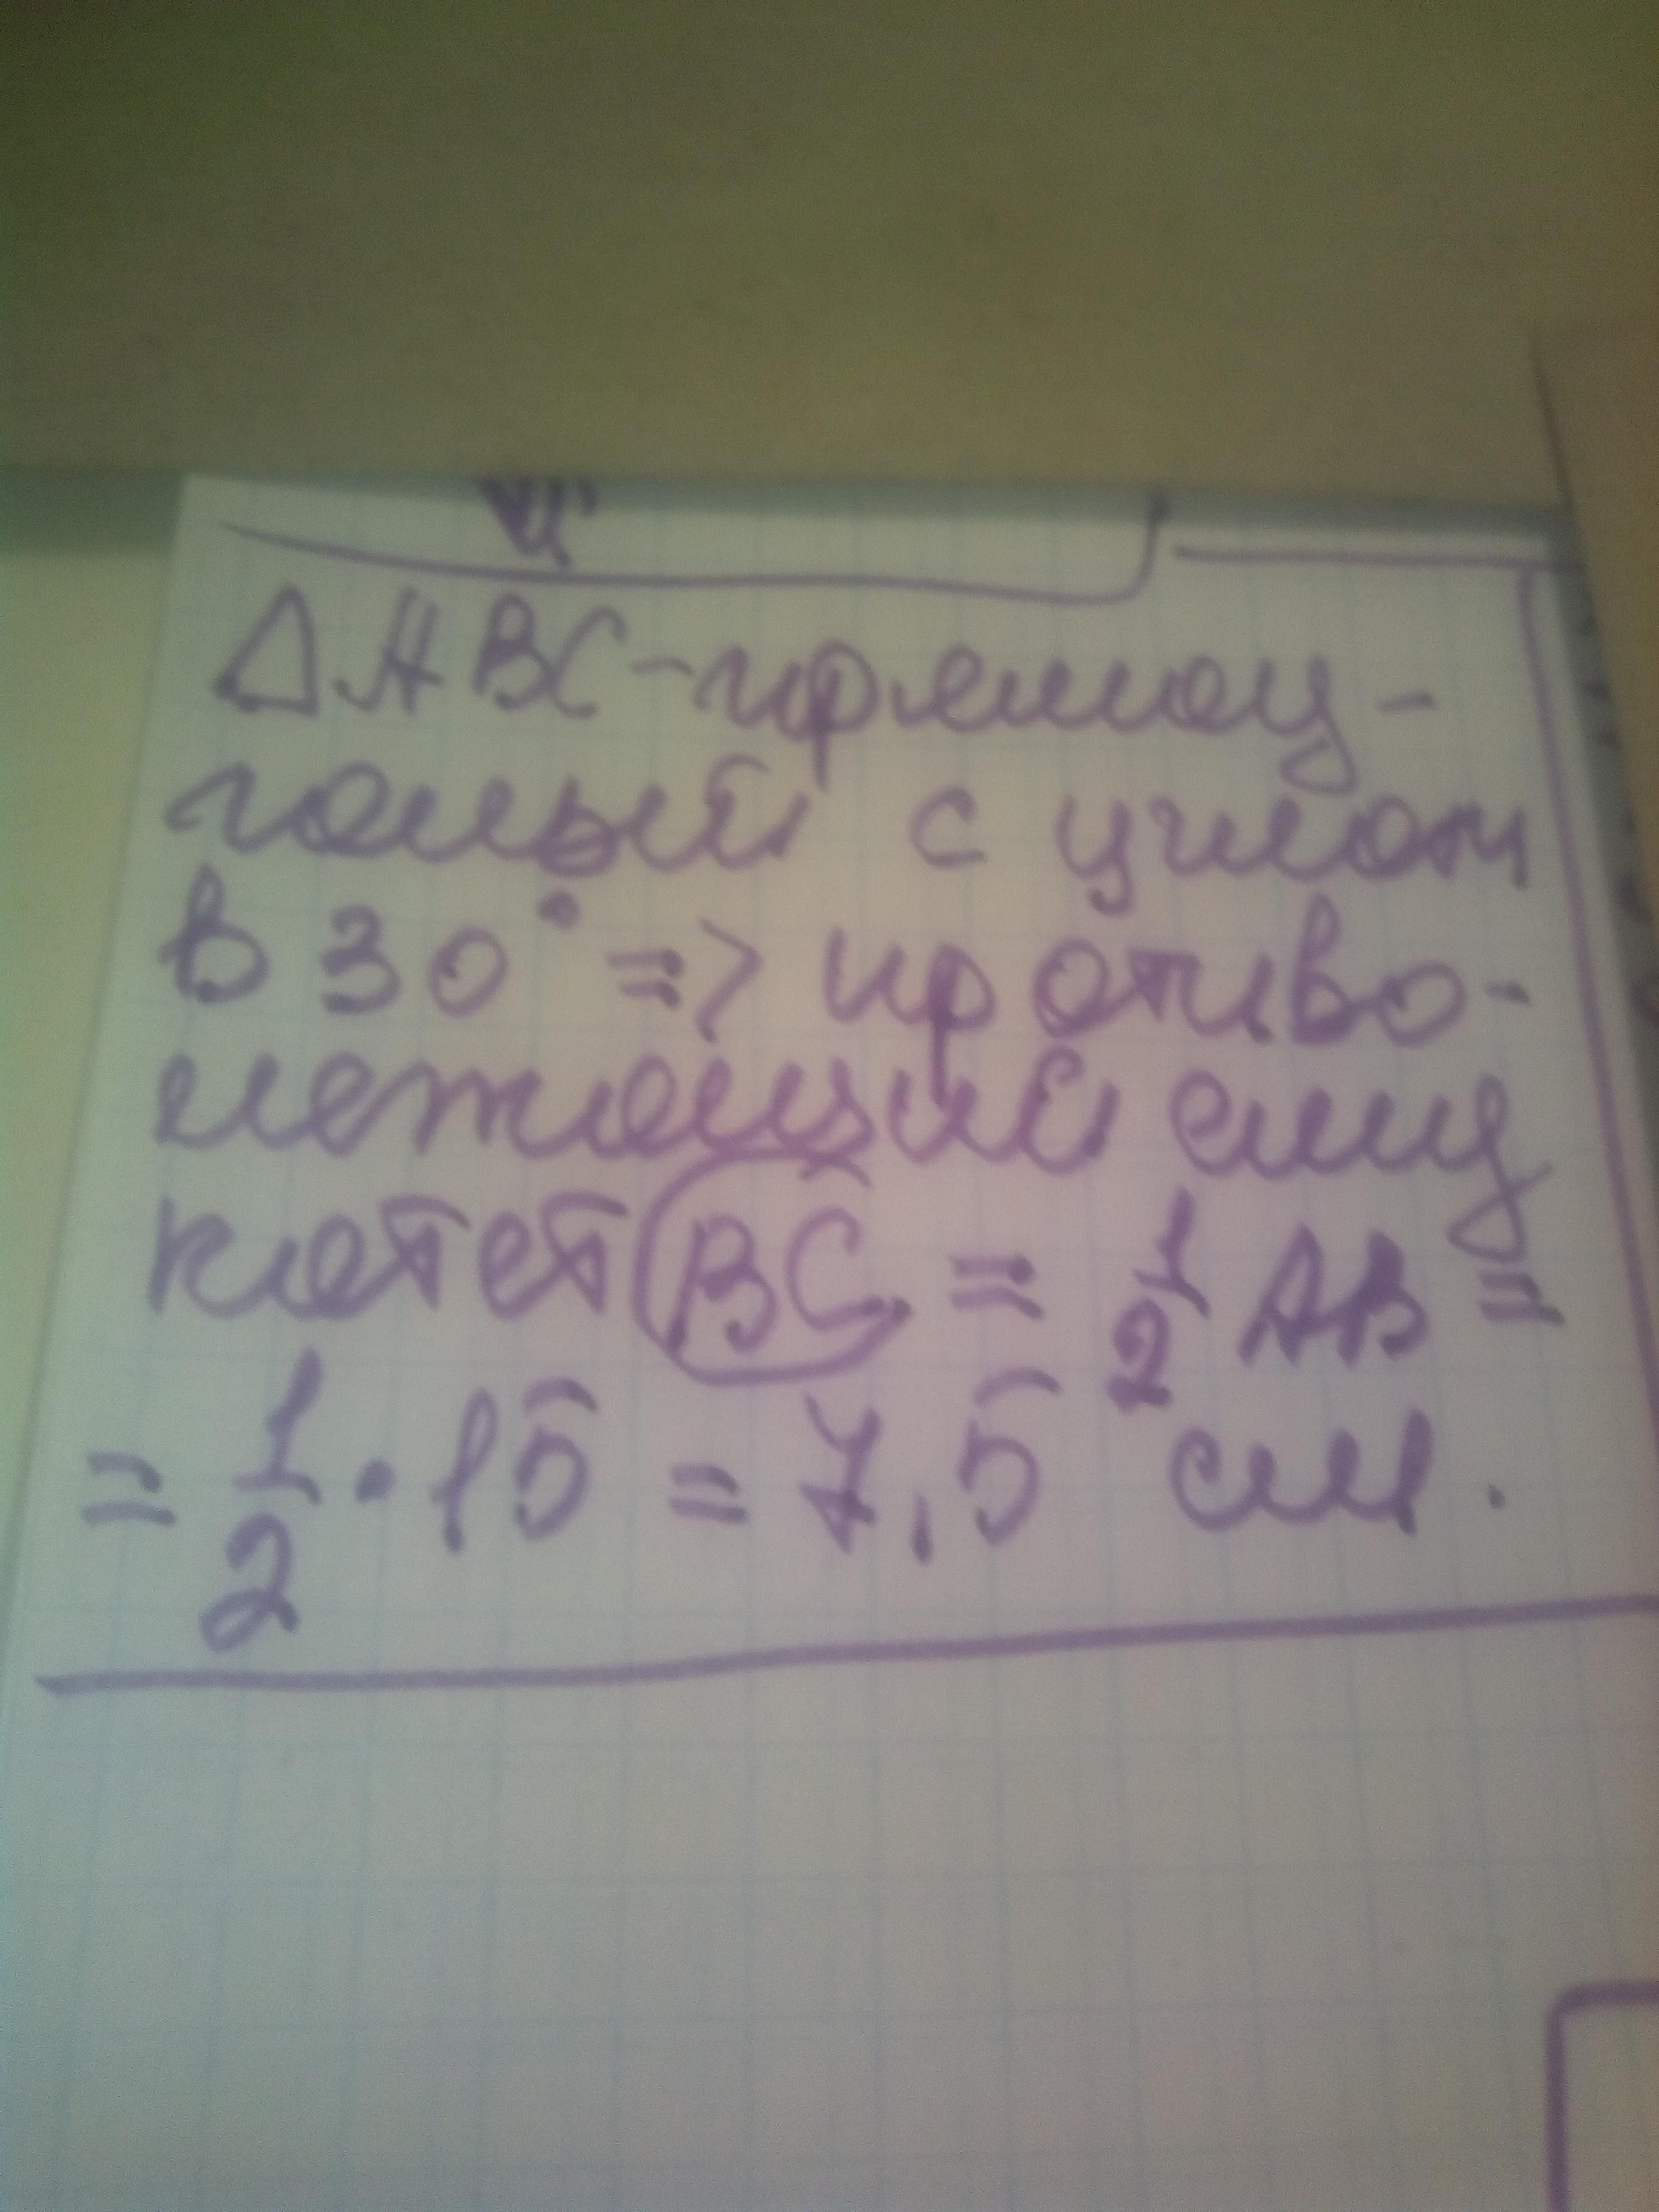 △ABC-прямоу-
гольый с углом
в 30° => противо-
лежащий ему
катет BC = 1/2 AB =
= 1/2 · 15 = 7,5 см.